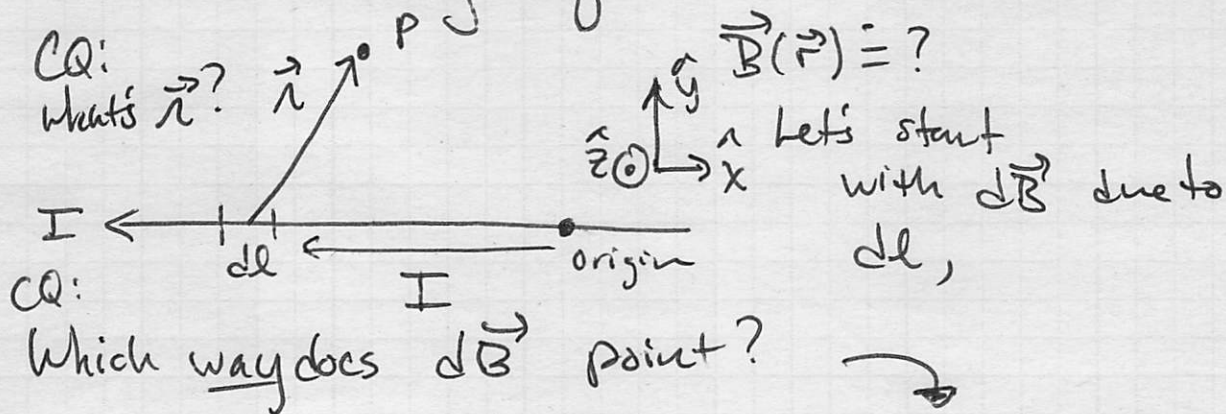 CQ:
what's r⃗? r⃗
P
B⃗(r⃗) ≟ ?
ŷ
ẑ x̂
Let's start
with dB⃗ due to
dl,
I
dl
I
origin
CQ:
Which way does dB⃗ point?